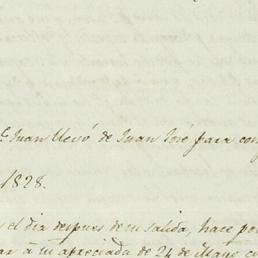 Juan llevó de Juan José para con
1828.
el dia despues de tu salida, hace po
ar á tu apreciada de 24 de Mayo co